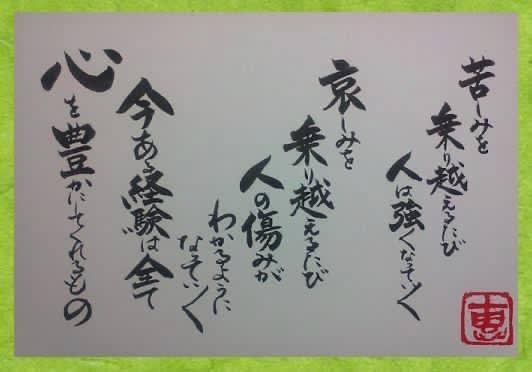 苦しみを
乗り越えるたび
人は強くなっていく
哀しみを
乗り越えるたび
人の傷みが
わかるように
なっていく
今ある経験は全て
心を豊かにしてくれるもの
恵